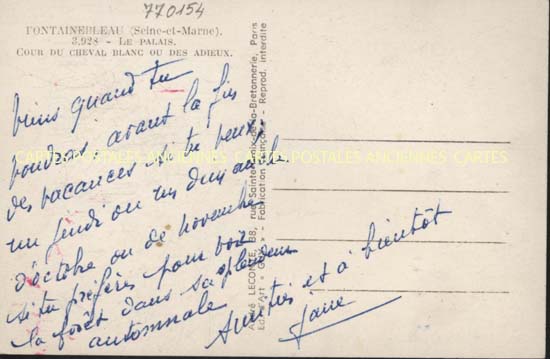 770154
FONTAINEBLEAU (Seine-et-Marne).
3,928 - LE PALAIS.
COUR DU CHEVAL BLANC OU DES ADIEUX.
Viens quand tu
voudras, avant la fin
des vacances si tu peux
un jeudi ou un dimanche
d'octobre ou de novembre
si tu préfères pour voir
la forêt dans sa splendeur
automnale
Amitiés et à bientôt
CARTES POSTALES ANCIENNES CARTES POSTALES ANCIENNES CARTES
André LECONTE, 38, rue Sainte-Croix-de-la-Bretonnerie, Paris
Ed. d'Art « » - Fabrication Française - Reprod. interdite